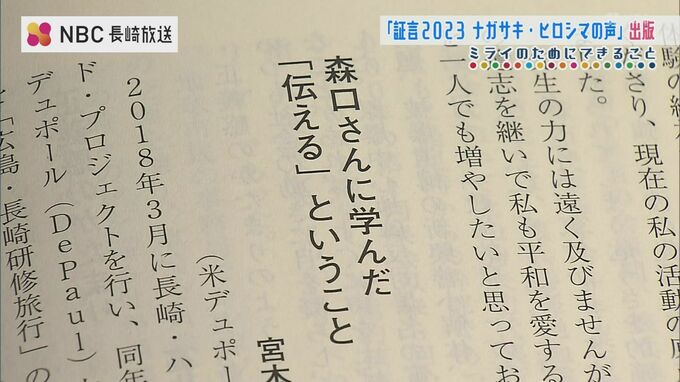 NBC 長崎放送
「証言2023 ナガサキ・ヒロシマの声」出版
ミライのためにできること
さり、現在の私の活動の
た。
生の力には遠く及びませんが
志を継いで私も平和を愛する
二人でも増やしたいと思ってお
森口さんに学んだ
「伝える」ということ
（米デュポー
宮木
2018年3月に長崎・ハ
ド・プロジェクトを行い、同年
デュポール（DePaul）
「広島・長崎研修旅行」の